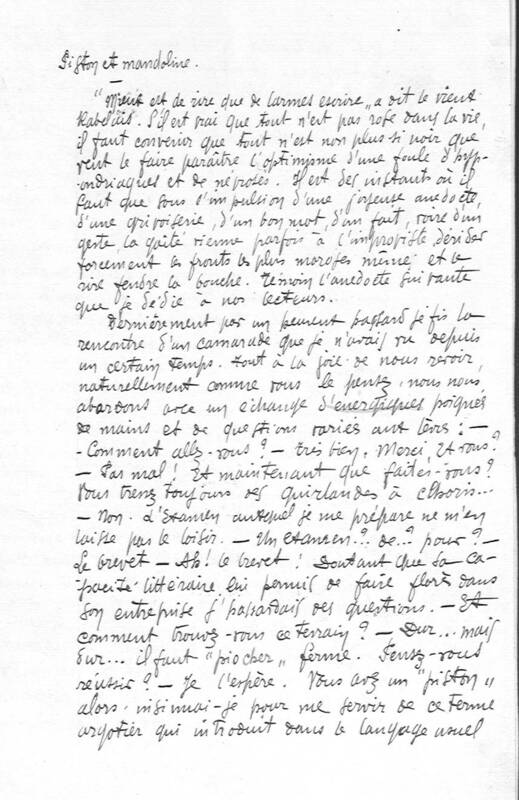 Piston et mandoline.
"Mieux est de rire que de larmes escrire" a dit le vieux
Rabelais. S'il est vrai que tout n'est pas rose dans la vie,
il faut convenir que tout n'est non plus si noir que
veut le faire paraître l'optimisme d'une foule d'hypo-
ondriaques et de névrosés. Il est des instants où il
faut que sous l'impulsion d'une joyeuse anecdote,
d'une grivoiserie, d'un bon mot, d'un fait, voire d'un
geste la gaîté vienne parfois à l'improviste, dérider
forcement les fronts les plus moroses même et le
rire fendre la bouche. Témoin l'anecdote suivante
que je dédie à nos lecteurs.
Dernièrement par un peurent hasard je fis la
rencontre d'un camarade que je n'avais vu depuis
un certain temps. Tout à la joie de nous revoir,
naturellement comme vous le pensez, nous nous
abordons avec un échange d'énergiques poignées
de mains et de questions variées aux lèvres : —
- Comment allez-vous ? — Très bien, Merci, Et vous ?
— Pas mal ! Et maintenant que faites-vous ?
Vous tressez toujours des guirlandes à chloris...
— Non. L'Examen auquel je me prépare ne m'en
laisse pas le loisir. — Un examen..? de..? pour ? —
Le brevet — Ah ! le brevet ! Doutant que sa ca-
pacité littéraire lui permis de faire florès dans
son entreprise j'hasardais des questions. — Et
comment trouvez-vous ce terrain ? — Dur... mais
dur... il faut "piocher" ferme. Pensez-vous
réussir ? — Je l'espère. Vous avez un "piston"
alors. insinuai-je pour me servir de ce terme
argotier qui introduit dans le langage usuel